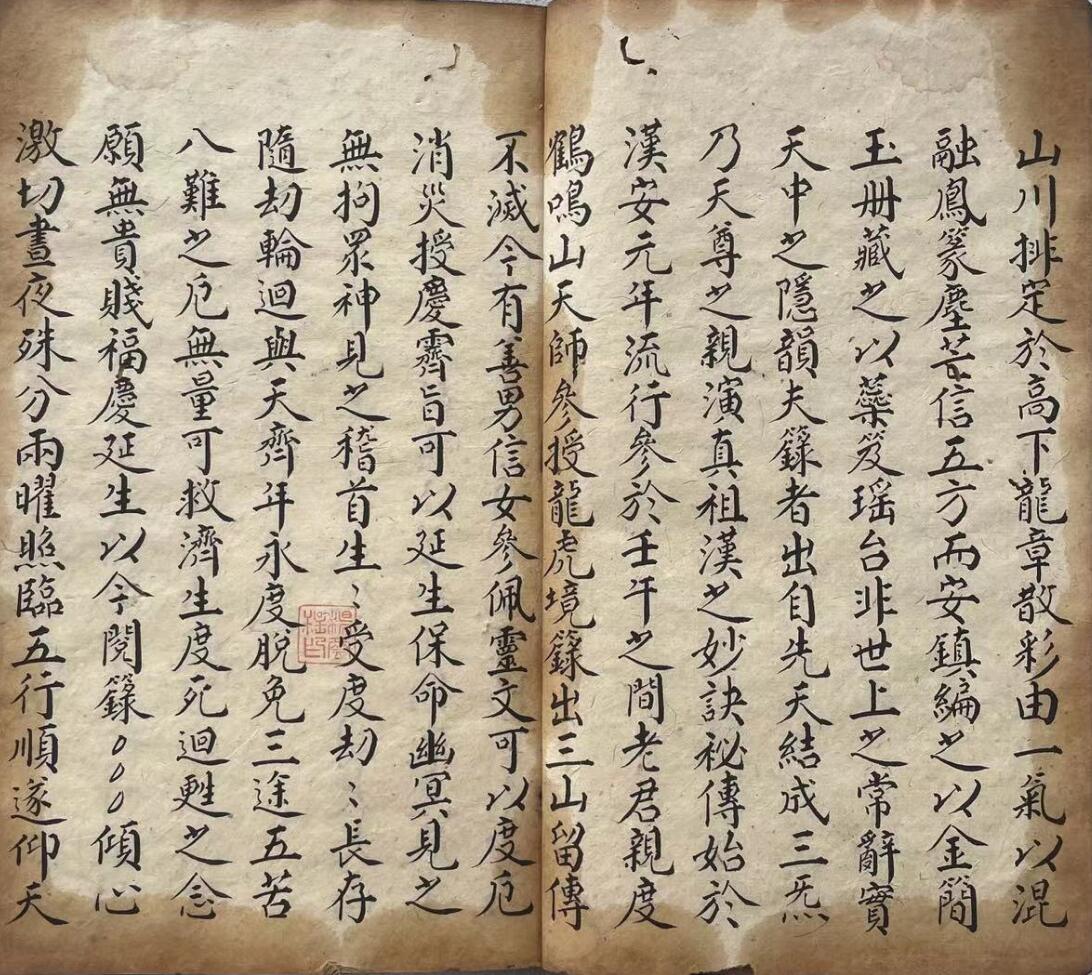 山川排定於高下龍章散彩由一氣以混
融鳳篆塵芒信五方而安鎮編之以金簡
玉册藏之以蘂笈瑶台非世上之常辭實
天中之隱韻夫籙者出自先天結成三炁
乃天尊之親演真祖漢之妙訣秘傳始於
漢安元年流行參於壬午之間老君親度
鶴鳴山天師參授龍虎境籙出三山留傳
不滅今有善男信女參佩靈文可以度厄
消災授慶霽旨可以延生保命幽冥見之
無拘眾神見之稽首生〻受度劫〻長存
隨劫輪迴與天齊年永度脫免三途五苦
八難之厄無量可救濟生度死迴甦之念
願無貴賤福慶延生以今閱籙○○○傾心
激切晝夜殊分兩曜照臨五行順遂仰天